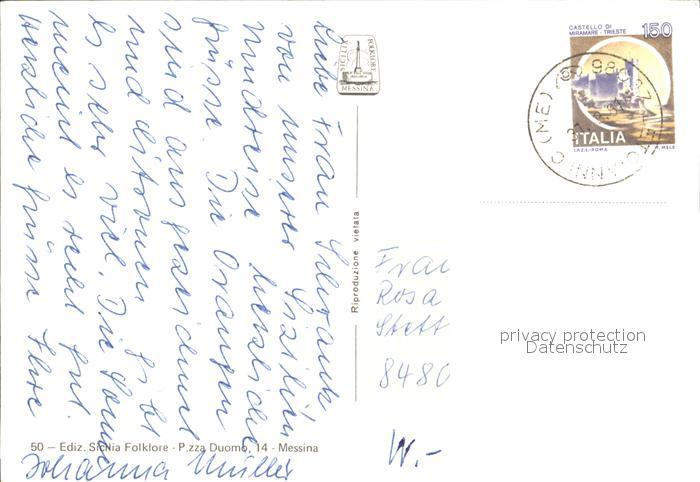 Liebe Frau
von unserer Sizilien
Rundreise herzliche
Grüsse. Die Orangen
sind ausgezeichnet
und Zitronen gibt
es sehr viel. Die Sonne
meint es recht gut.
Herzliche Grüsse Ihre
Johanna Müller
SICILIA FOLKLORE
MESSINA
CASTELLO DI
MIRAMARE - TRIESTE
150
ITALIA
I.P.Z.S. - ROMA
E. MELE
(ME)
Riproduzione vietata
Frau
Rosa
Stett
8480
W.-
privacy protection
Datenschutz
50 — Ediz. Sicilia Folklore - P.zza Duomo, 14 - Messina